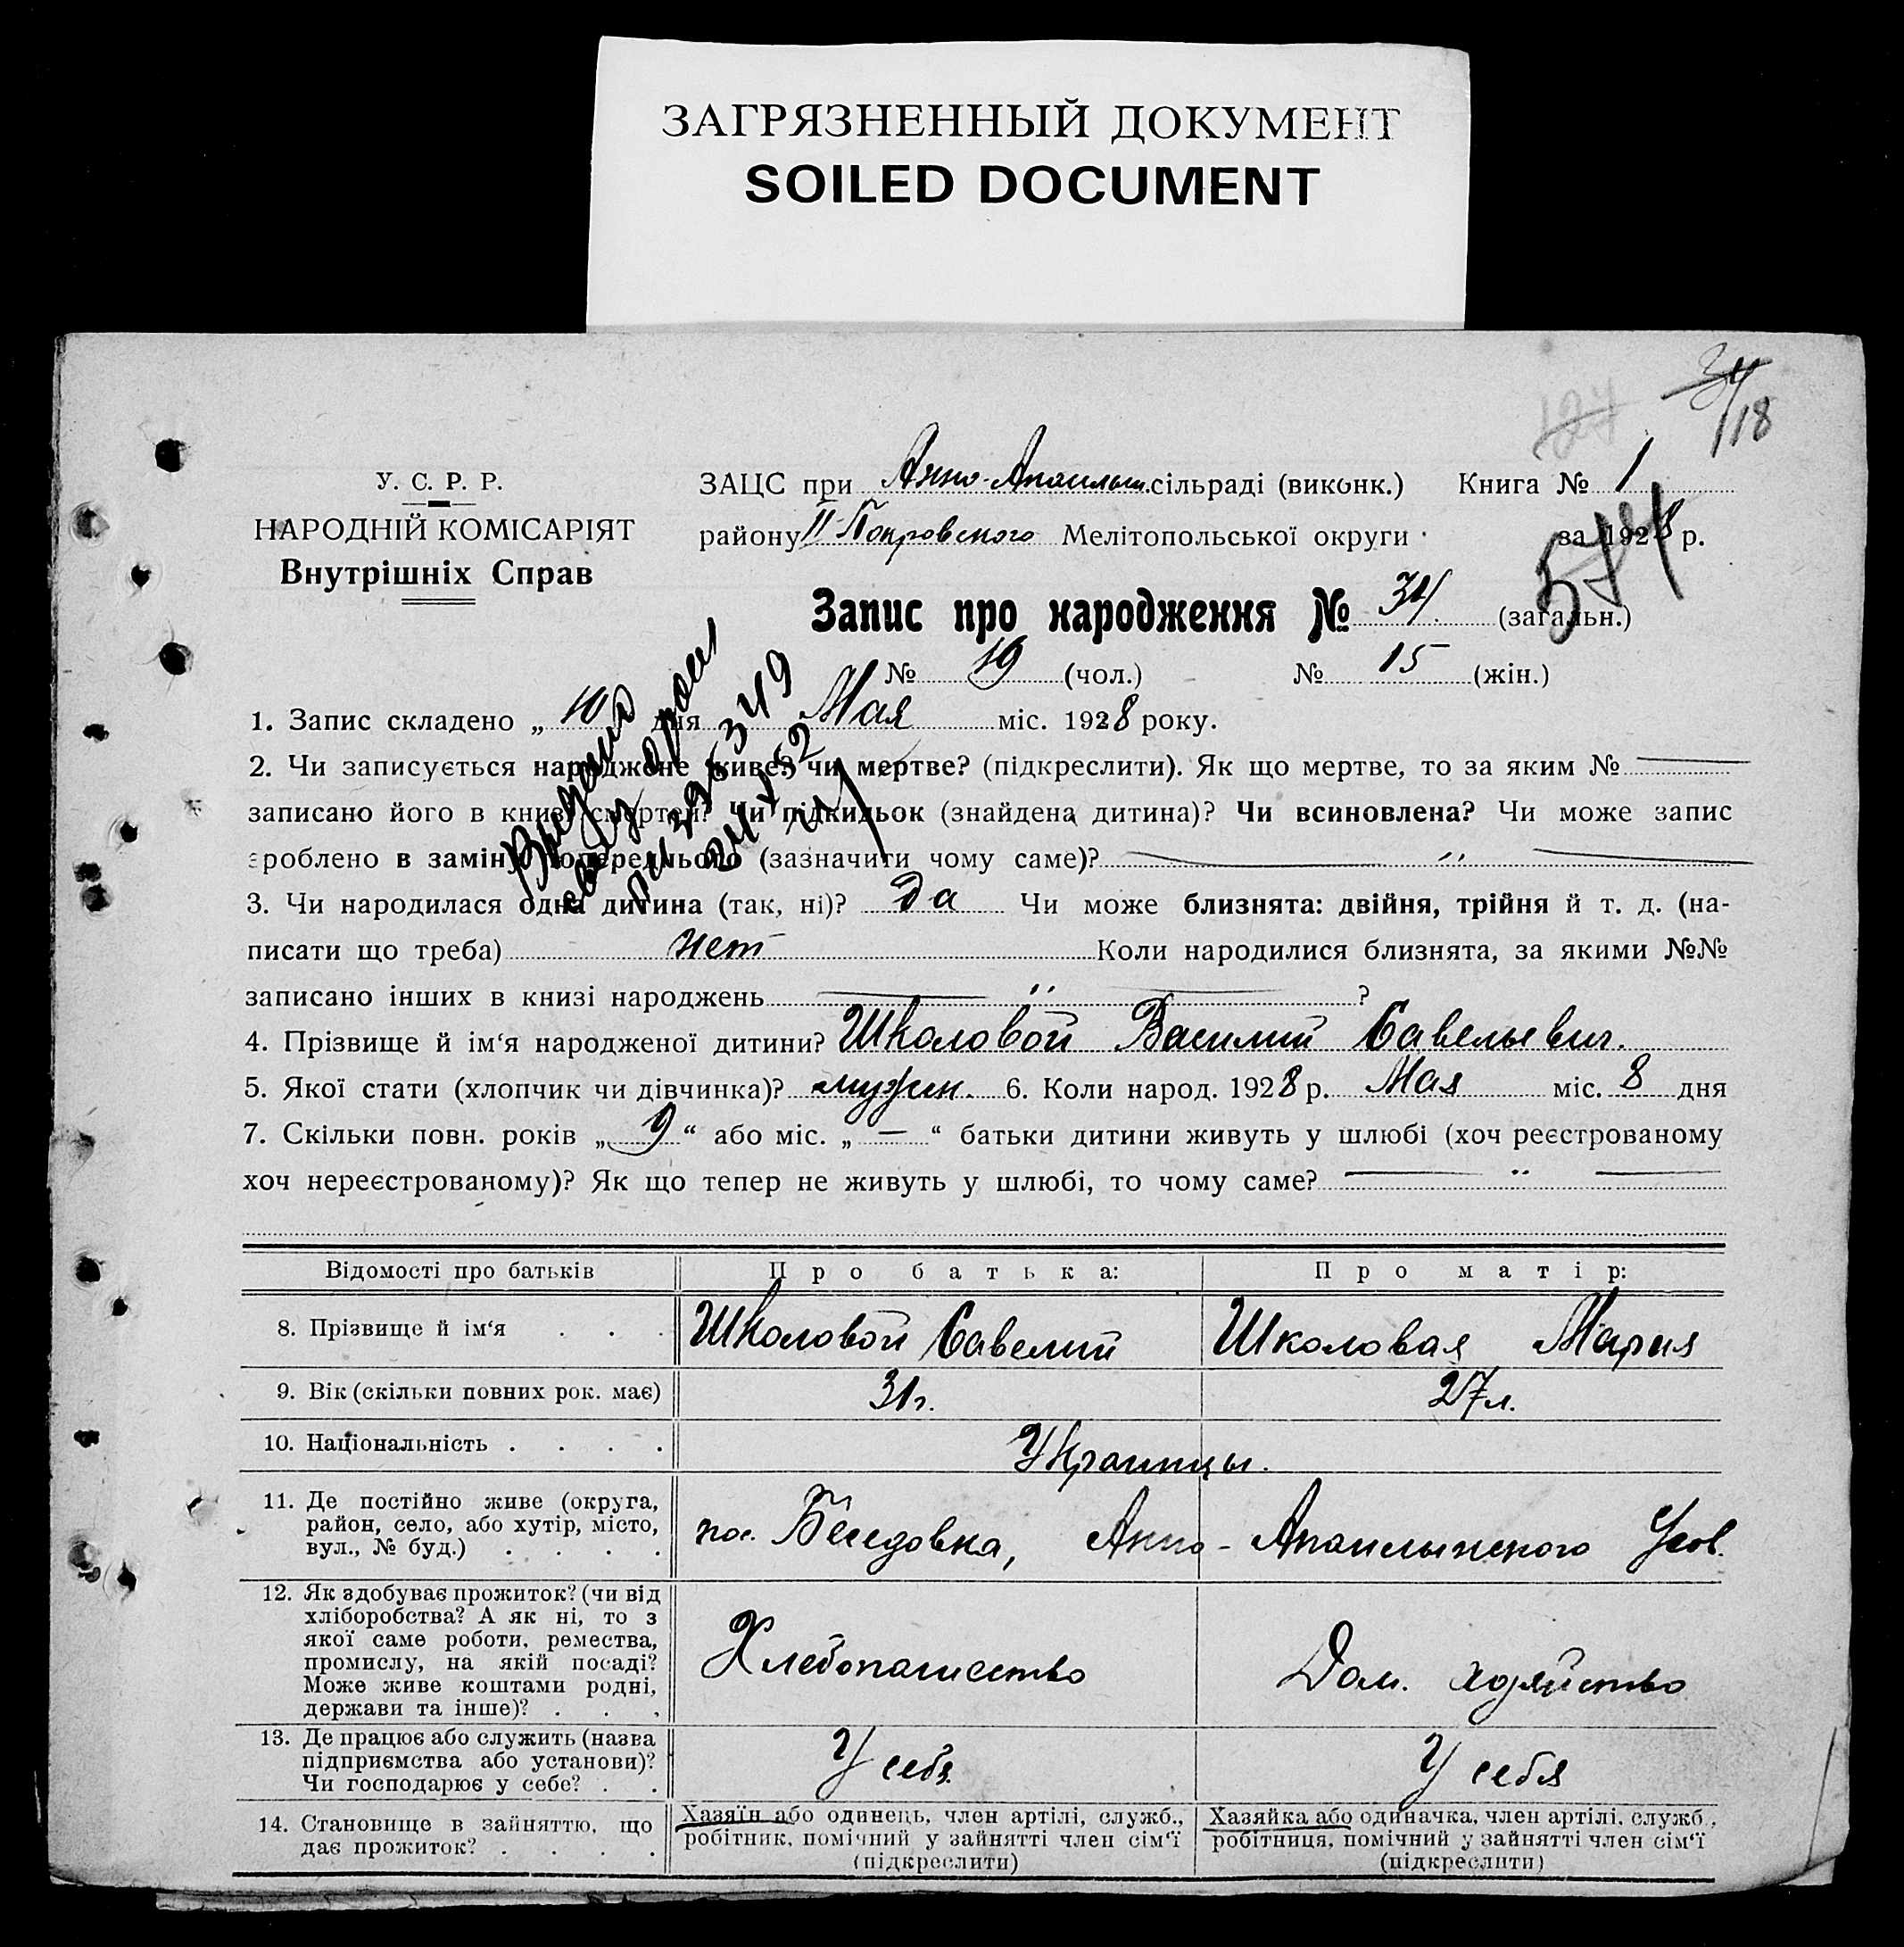 ЗАГРЯЗНЕННЫЙ ДОКУМЕНТ
SOILED DOCUMENT
34
118
124
У. С. Р. Р.
НАРОДНІЙ КОМІСАРІЯТ
Внутрішніх Справ
ЗАЦС при Анно- сільраді (виконк.) Книга № 1
району II-Покровского Мелітопольської округи за 1928 р.
574
Запис про народження № 34 (загальн.)
№ 19 (чол.) № 15 (жін.)
1. Запис складено „ 10 дня Мая міс. 1928 року.
2. Чи записується народжене живе? чи мертве? (підкреслити). Як що мертве, то за яким №
записано його в книзі смертей? Чи підкидьок (знайдена дитина)? Чи всиновлена? Чи може запис
зроблено в замін попереднього (зазначити чому саме)? — „ —
Выдано
3. Чи народилася одна дитина (так, ні)? Да Чи може близнята: двійня, трійня й т. д. (на-
писати що треба) нет Коли народилися близнята, за якими №№
записано інших в книзі народжень — „ — ?
4. Прізвище й ім‘я народженої дитини? Школовой Василий Савельевич.
5. Якої стати (хлопчик чи дівчинка)? мужск. 6. Коли народ. 1928 р. Мая міс. 8 дня
7. Скільки повн. років „ 9 “ або міс. „ — “ батьки дитини живуть у шлюбі (хоч реєстрованому
хоч нереєстрованому)? Як що тепер не живуть у шлюбі, то чому саме? — „ —
Відомості про батьків Про батька: Про матір:
8. Прізвище й ім‘я . . . Школовой Савелий Школовая Мария
9. Вік (скільки повних рок. має) 31 г. 27 л.
10. Національність . . . . Украинцы.
11. Де постійно живе (округа,
район, село, або хутір, місто,
вул., № буд.) . . . .
пос. Беседовка, Анно-
12. Як здобуває прожиток? (чи від
хліборобства? А як ні, то з
якої саме роботи, ремества,
промислу, на якій посаді?
Може живе коштами родні,
держави та інше)? . . .
Хлебопашество Дом. хозяйство
13. Де працює або служить (назва
підприємства або установи)?
Чи господарює у себе? . .
У себя У себя
14. Становище в зайняттю, що
дає прожиток? . . . .
Хазяїн або одинець, член артілі, служб.,
робітник, помічний у зайнятті член сім‘ї
(підкреслити)
Хазяйка або одиначка, член артілі, служб.,
робітниця, помічний у зайнятті член сім‘ї
(підкреслити)